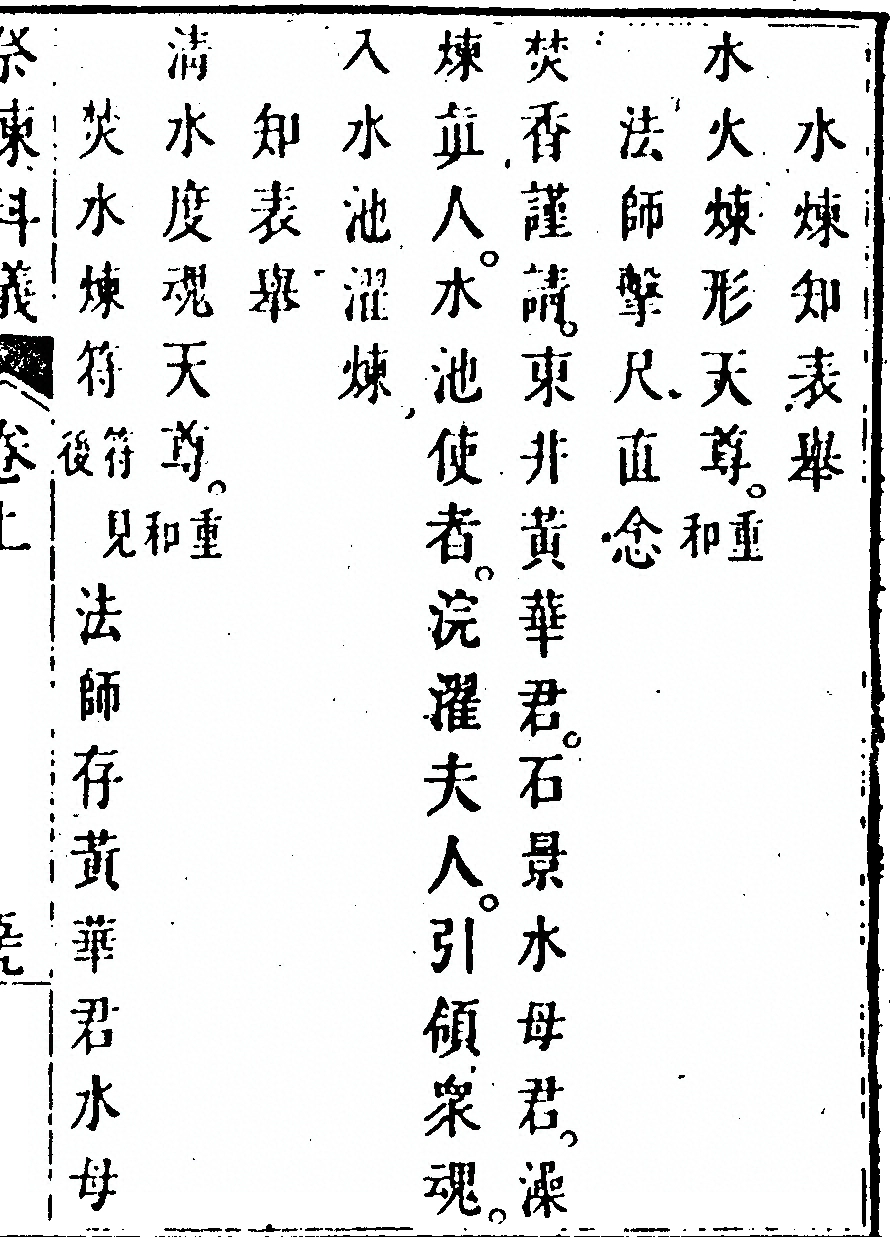 水煉知表舉
水火煉形天尊。重和
法師擊尺直念
焚香謹請。東井黃華君。石景水母君。澡
煉眞人。水池使者。浣濯夫人。引領衆魂。
入水池濯煉
知表舉
清水度魂天尊。重和
焚水煉符符見後法師存黃華君水母
祭煉科儀 卷上